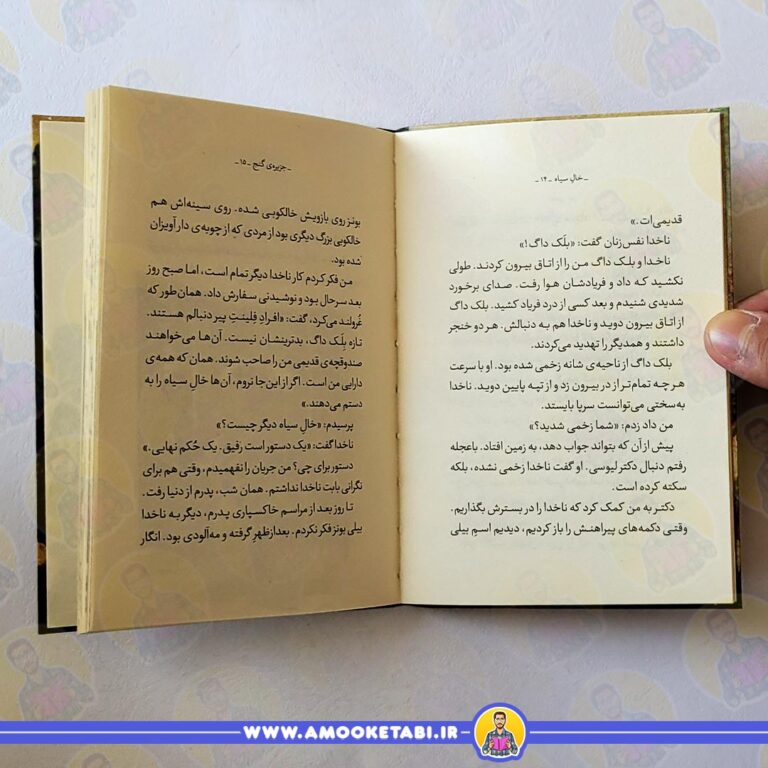 ـ خال سیاه ـ ۱۴ ـ
قدیمی‌ات.»
ناخدا نفس‌زنان گفت: «بلَک داگ!»
ناخدا و بلک داگ من را از اتاق بیرون کردند. طولی
نکشید که داد و فریادشان هوا رفت. صدای برخورد
شدیدی شنیدم و بعد کسی از درد فریاد کشید. بلک داگ
از اتاق بیرون دوید و ناخدا هم به دنبالش. هر دو خنجر
داشتند و همدیگر را تهدید می‌کردند.
بلک داگ از ناحیه‌ی شانه زخمی شده بود. او با سرعت
هر چه تمام‌تر از در بیرون زد و از تپه پایین دوید. ناخدا
به‌سختی می‌توانست سرپا بایستد.
من داد زدم: «شما زخمی شدید؟»
پیش از آن که بتواند جواب دهد، به زمین افتاد. باعجله
رفتم دنبال دکتر لیوسی. او گفت ناخدا زخمی نشده، بلکه
سکته کرده است.
دکتر به من کمک کرد که ناخدا را در بسترش بگذاریم.
وقتی دکمه‌های پیراهنش را باز کردیم، دیدیم اسم بیلی
ـ جزیره‌ی گنج ـ ۱۵ ـ
بونز روی بازویش خالکوبی شده. روی سینه‌اش هم
خالکوبی بزرگ دیگری بود از مردی که از چوبه‌ی دار آویزان
شده بود.
من فکر کردم کار ناخدا دیگر تمام است، اما صبح روز
بعد سرحال بود و نوشیدنی سفارش داد. همان‌طور که
غُرولند می‌کرد، گفت: «افرادِ فلینتِ پیر دنبالم هستند.
تازه بِلَک داگ، بدترینشان نیست. آن‌ها می‌خواهند
صندوقچه‌ی قدیمی من را صاحب شوند. همان که همه‌ی
دارایی من است. اگر از این‌جا نروم، آن‌ها خالِ سیاه را به
دستم می‌دهند.»
پرسیدم: «خالِ سیاه دیگر چیست؟»
ناخدا گفت: «یک دستور است رفیق. یک حُکم نهایی.»
دستور برای چی؟ من جریان را نفهمیدم، وقتی هم برای
نگرانی بابت ناخدا نداشتم. همان شب، پدرم از دنیا رفت.
تا روز بعد از مراسم خاکسپاری پدرم، دیگر به ناخدا
بیلی بونز فکر نکردم. بعدازظهرِ گرفته و مه‌آلودی بود. انگار
WWW.AMOOKETABI.IR